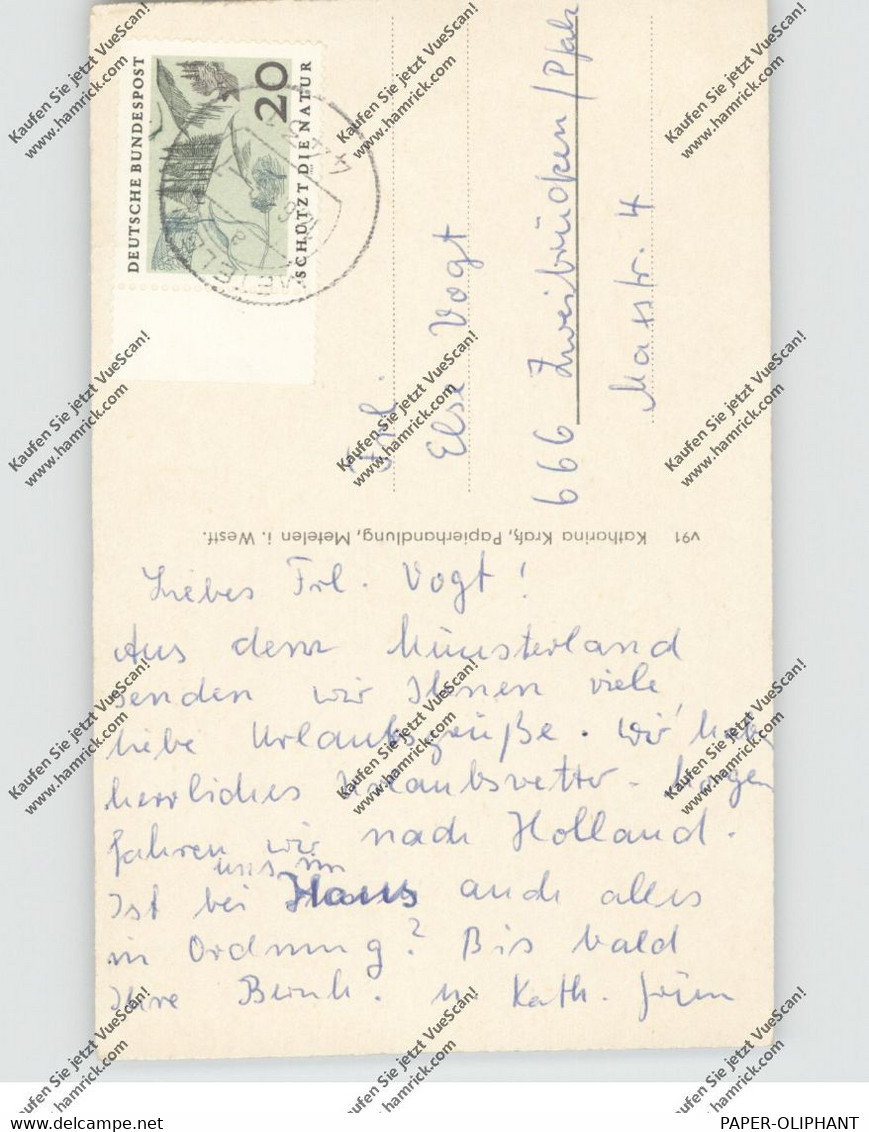 DEUTSCHE BUNDESPOST
20
SCHÜTZT DIE NATUR
METELEN
Frl.
Else Vogt
666 Zweibrücken/Pfalz
4
v91 Katharina Kraß, Papierhandlung, Metelen i. Westf.
Liebes Frl. Vogt!
Aus dem Münsterland
senden wir Ihnen viele
liebe Urlaubsgrüße. Wir hab
herrliches Urlaubswetter. Morgen
fahren wir nach Holland.
Ist bei uns im Haus auch alles
in Ordnung? Bis bald
Ihre Bernh. u. Kath.
Kaufen Sie jetzt VueScan!
www.hamrick.com
Kaufen Sie jetzt VueScan!
www.hamrick.com
Kaufen Sie jetzt VueScan!
www.hamrick.com
Kaufen Sie jetzt VueScan!
www.hamrick.com
Kaufen Sie jetzt VueScan!
www.hamrick.com
Kaufen Sie jetzt VueScan!
www.hamrick.com
Kaufen Sie jetzt VueScan!
www.hamrick.com
Kaufen Sie jetzt VueScan!
www.hamrick.com
Kaufen Sie jetzt VueScan!
www.hamrick.com
Kaufen Sie jetzt VueScan!
www.hamrick.com
Kaufen Sie jetzt VueScan!
www.hamrick.com
Kaufen Sie jetzt VueScan!
www.hamrick.com
www.delcampe.net
PAPER-OLIPHANT